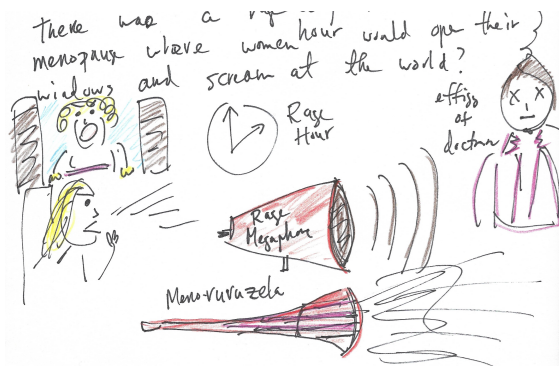 there was a
menopause where women hour would open their
windows and scream at the world?
Rage
Hour
effigy
of
doctor
Rage
Megaphone
Menovuvuzela